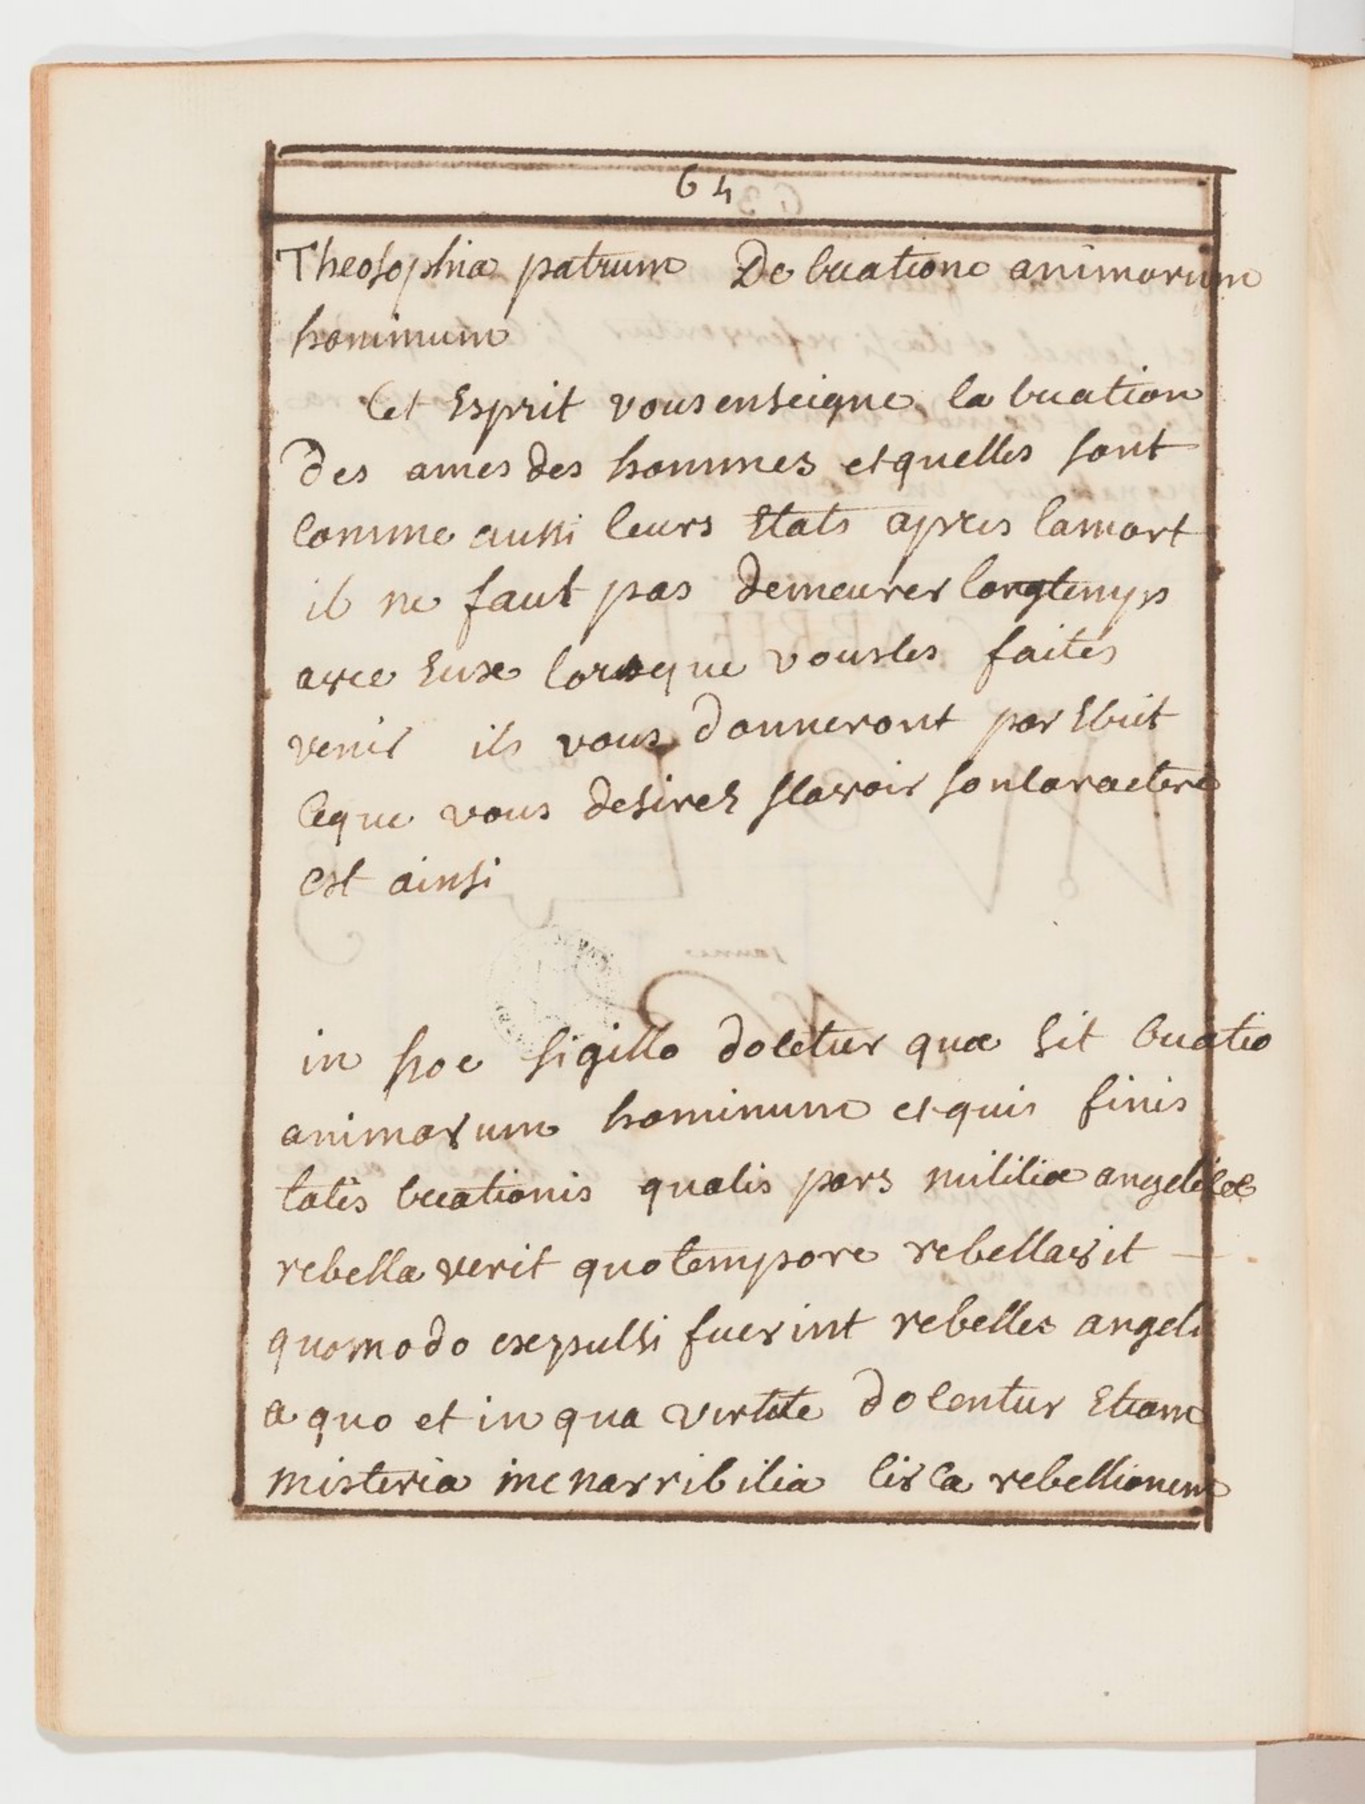 64
Theosophia patrum De creatione animorum
hominum
Cet Esprit vous enseigne la creation
des ames des hommes et quelles sont
comme aussi leurs Etats apres la mort
il ne faut pas demeurer longtemps
avec Eux lorsque vous les faites
venir ils vous donneront par Ecrit
ceque vous desirez scavoir son caractere
est ainsi
in hoc sigillo docetur quæ sit creatio
animarum hominum et quis finis
talis creationis qualis pars militiæ angelicæ
rebellaverit quo tempore rebellavit
quomodo expulsi fuerint rebelles angeli
a quo et in qua virtute docentur Etiam
misteria inenarribilia circa rebellionem